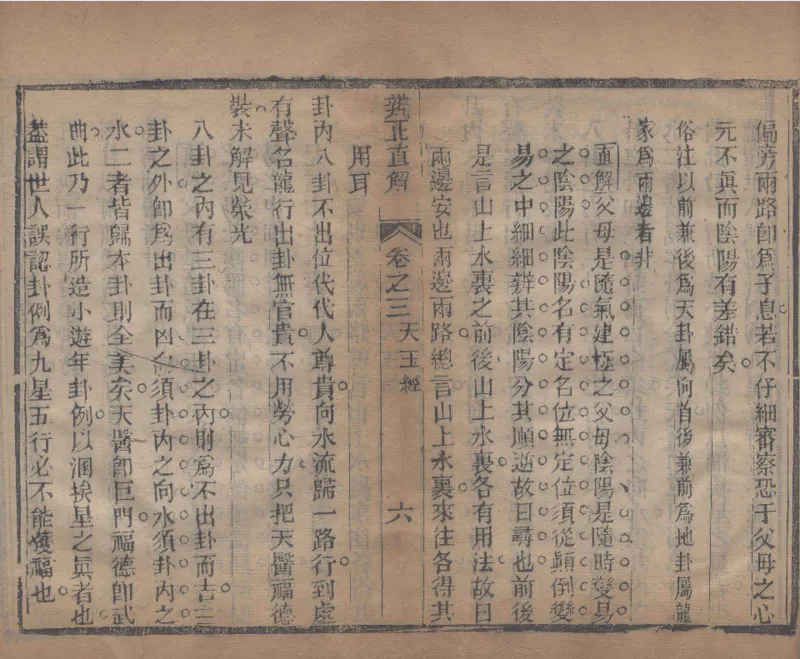 偏旁兩路卽爲子息若不仔細審察恐于父母之心
元不眞而陰陽有差錯矣
俗注以前兼後爲天卦屬向首後兼前爲地卦屬龍
家爲兩邊者非
直解父母是隨氣建極之父母陰陽是隨時變易
之陰陽此陰陽名有定名位無定位須從顚倒變
易之中細細辨其陰陽分其順逆故曰尋也前後
是言山上水裏之前後山上水裏各有用法故曰
兩邊安也兩邊兩路總言山上水裏來往各得其
辨正直解 卷之三 天玉經 六
用耳
卦內八卦不出位代代人尊貴向水流歸一路行到處
有聲名龍行出卦無官貴不用勞心力只把天醫福德
裝未解見榮光
八卦之內有三卦在三卦之內則爲不出卦而吉三
卦之外卽爲出卦而凶向須卦內之向水須卦內之
水二者皆歸本卦則全美矣天醫卽巨門福德卽武
曲此乃一行所造小遊年卦例以溷挨星之眞者也
葢謂世人誤認卦例爲九星五行必不能獲福也